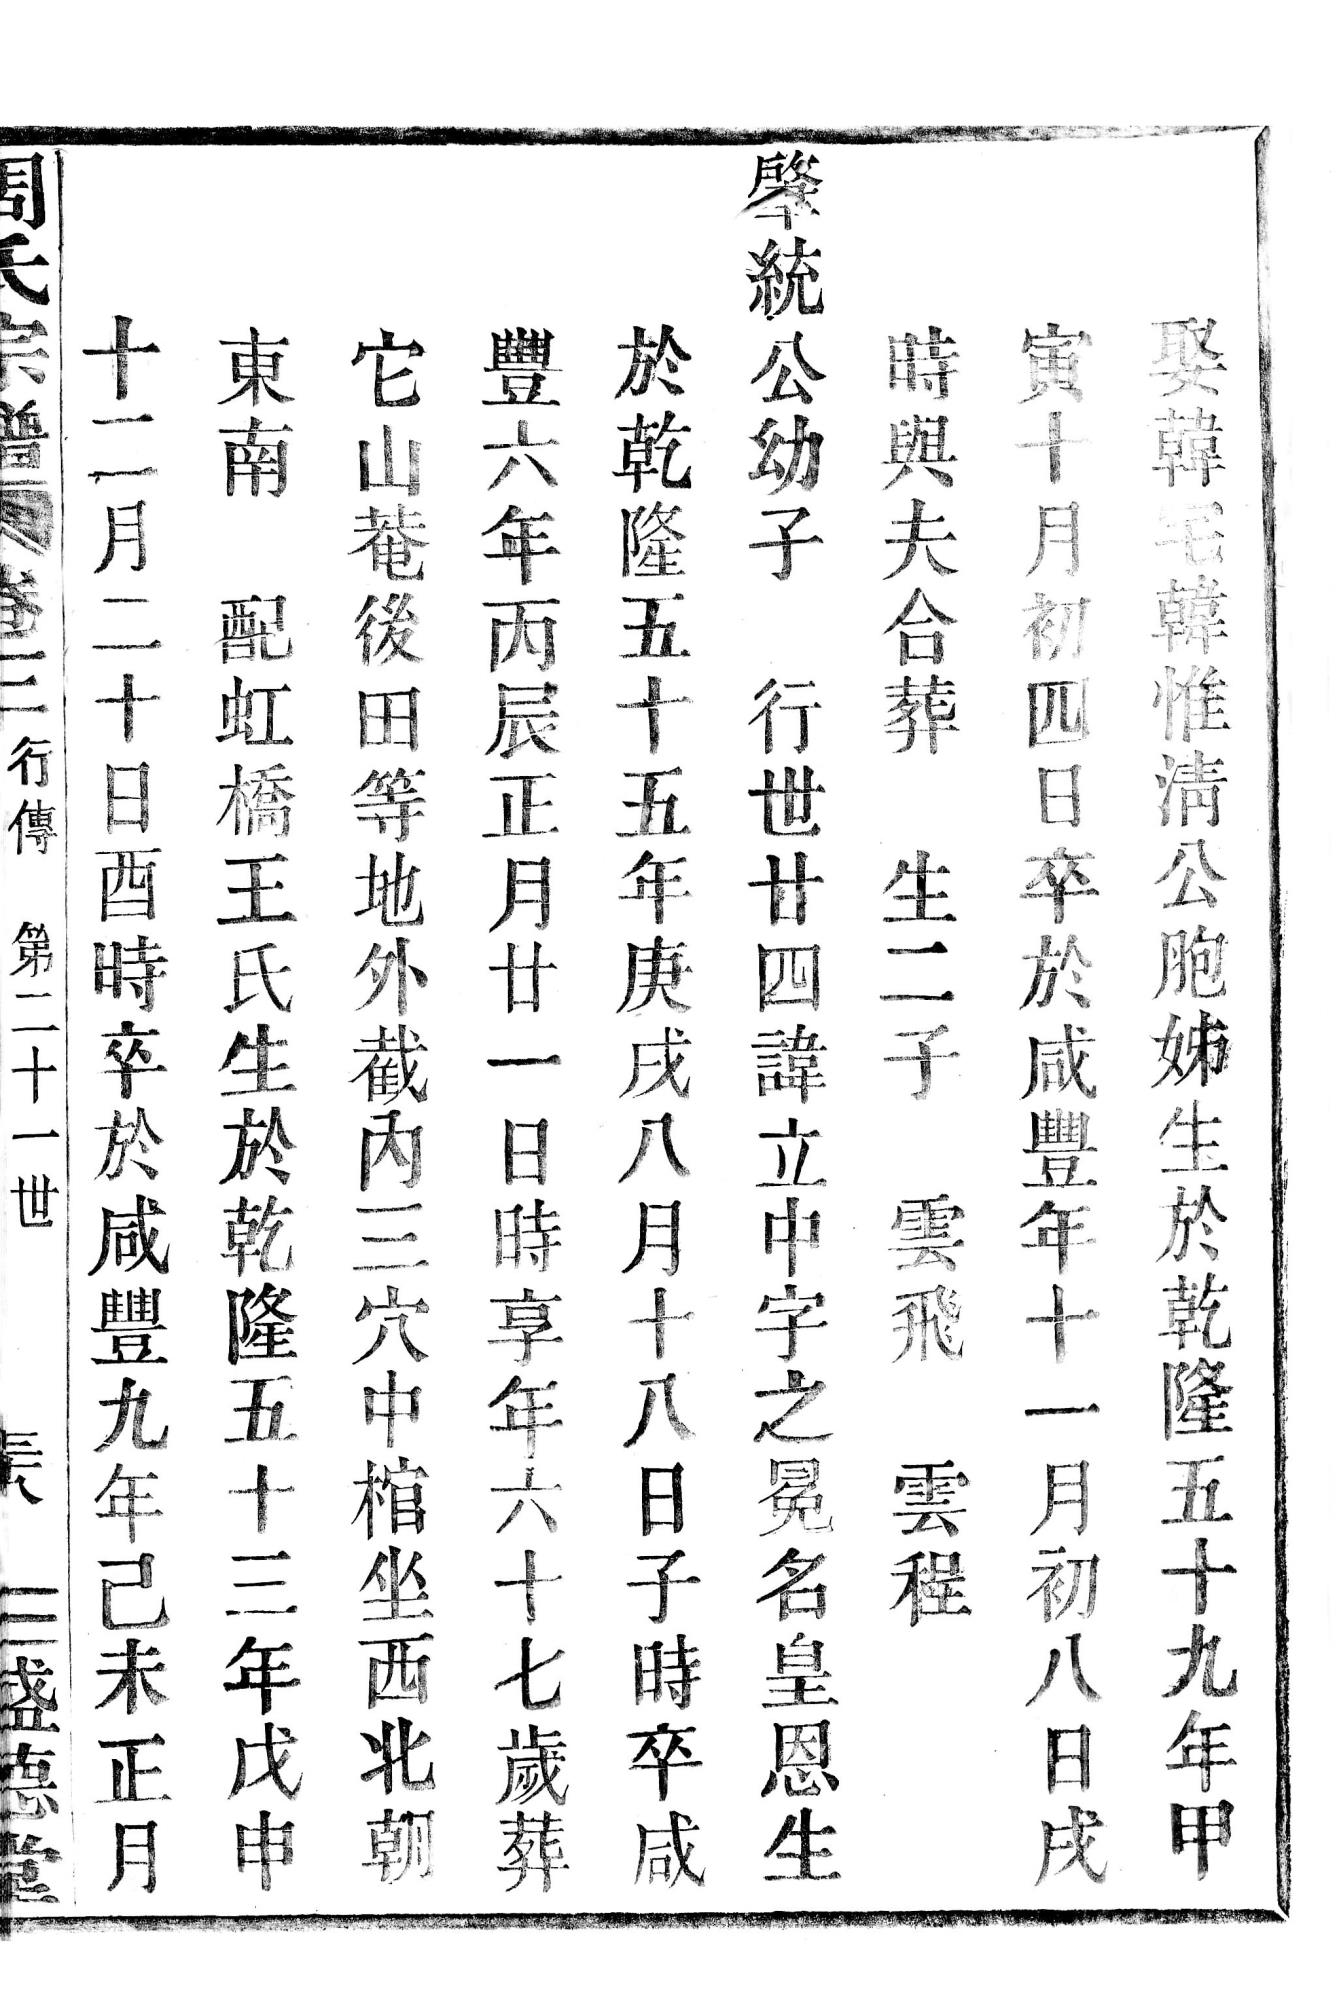 娶韓宅韓惟淸公胞姊生於乾隆五十九年甲
寅十月初四日卒於咸豐年十一月初八日戌
時與夫合葬　生二子　雲飛　雲程
肇統公幼子　行世廿四諱立中字之冕名皇恩生
於乾隆五十五年庚戌八月十八日子時卒咸
豐六年丙辰正月廿一日時享年六十七歲葬
它山菴後田等地外截內三穴中棺坐西北朝
東南　配虹橋王氏生於乾隆五十三年戊申
十二月二十日酉時卒於咸豐九年己未正月
周氏宗譜　卷三　行傳　第二十一世　三　盛德堂